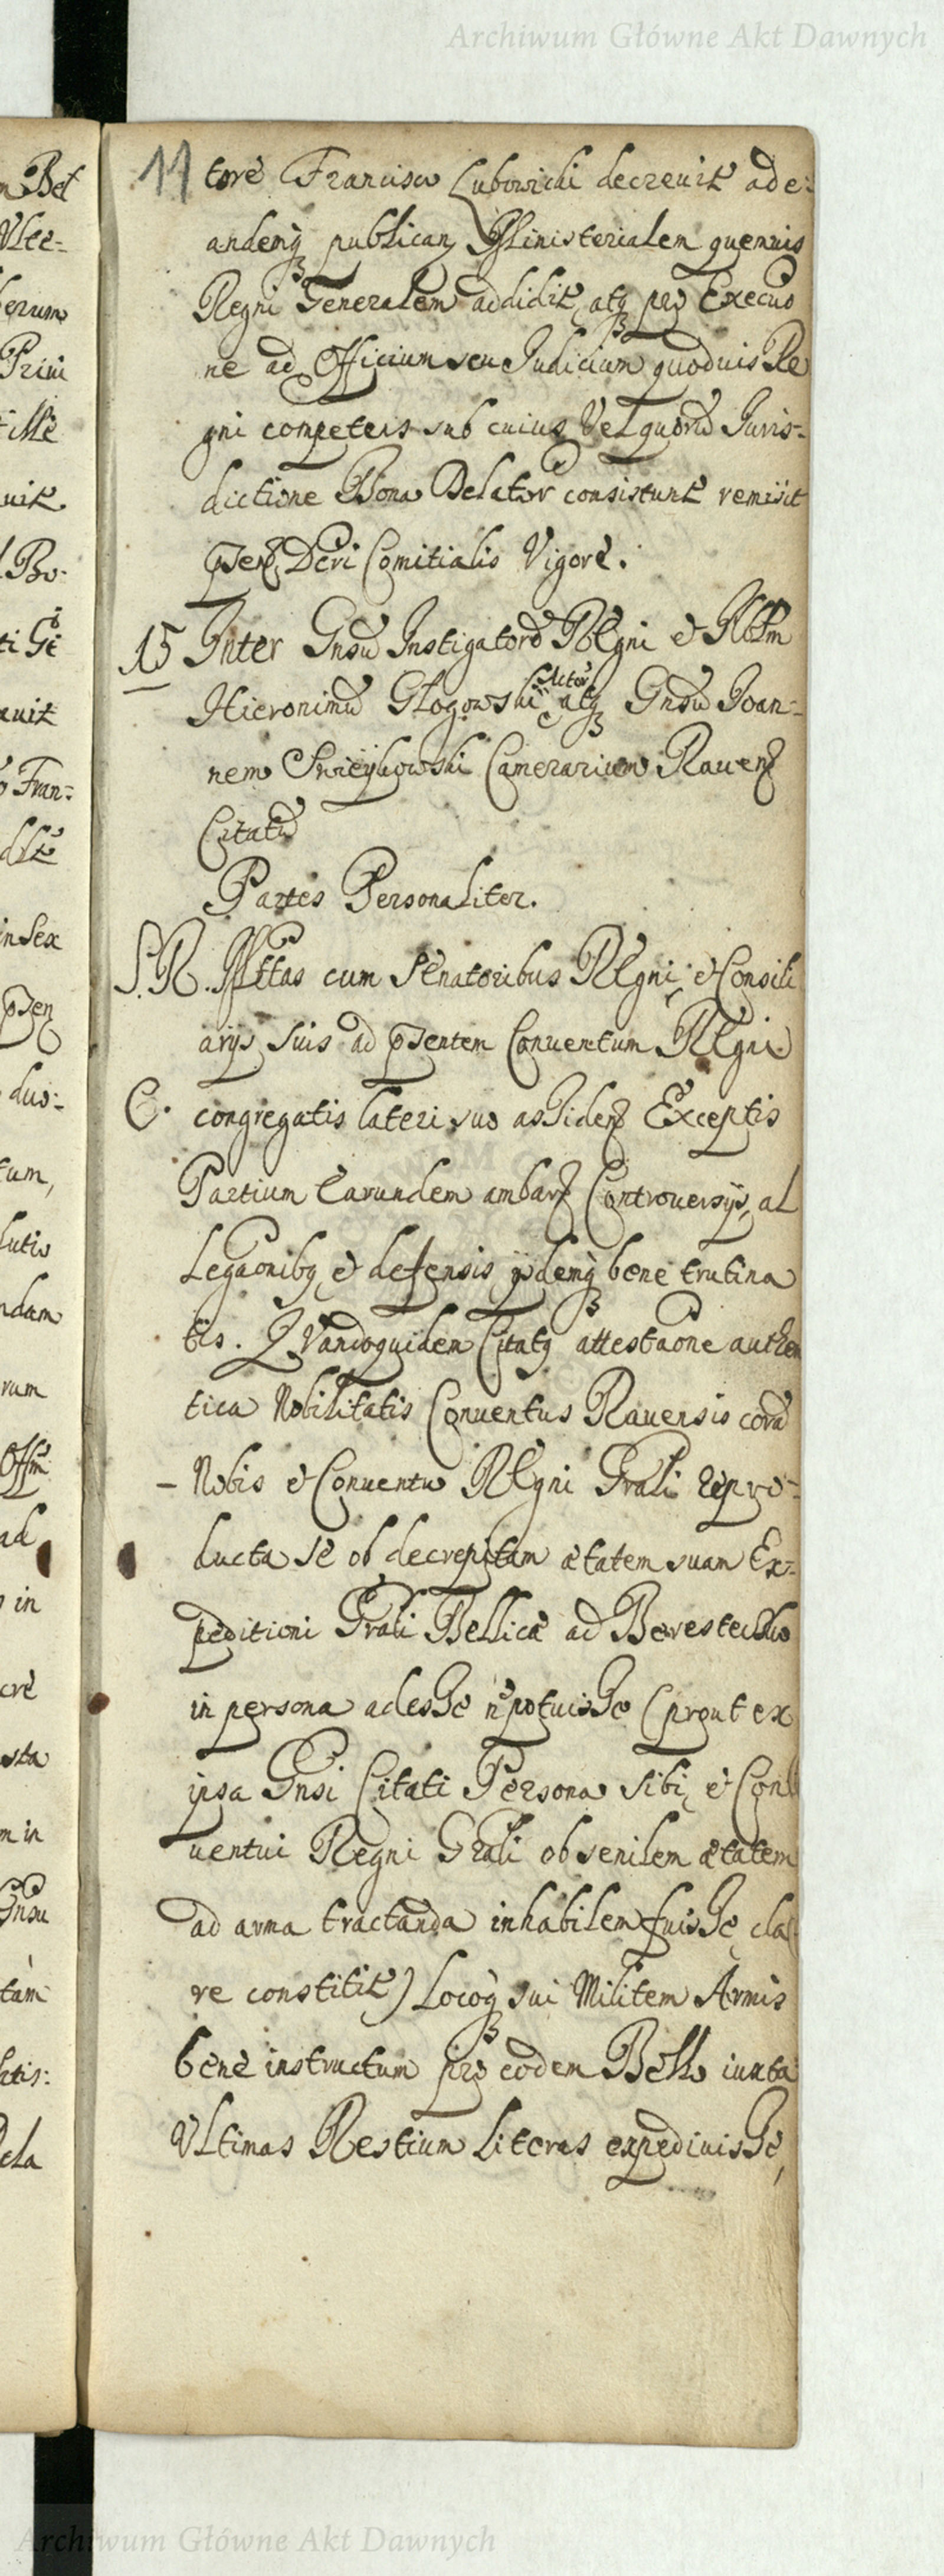 Archiwum Główne Akt Dawnych
11 torẽ Francisco Lubowicki decreuit ade:
andemq publicam Ministerialem quemuis
Regni Generalem addidit atq pro Executo
ne ad Officium seu Judicium quoduis Re
gni competens sub cuius Vel quorũ Juris-
dictione Bona Delator consistunt remisit
pñt Dcri Comitialis Vigorè.
15 Inter Gnsũ Instigatorẽ Regni et
Hieronimũ Głogowski Actor atq Gnsũ Joan-
nem Swieykowski Camerarium Rauen
Citatũ
Partes Personaliter.
S. R. Mttas cum Senatoribus Regni et Consili
arijs suis ad psentem Conuentum Regni
C. congregatis lateri suo assiden Exceptis
Partium earundem ambar Controuersijs, al
legaonibq et defensis ijsdemq bene trutina
tis. Quandoquidem Citatq attestaone authen
tica Nobilitatis Conuentus Rauensis corã
– Nobis et Conuentu Regni Grali repro-
ducta se ob decrepitam ætatem suam Ex-
peditioni Grali Bellicæ ad Berestechko
in persona adesse nõ potuisse (prout ex
ipsa Gnsi Citati Persona Sibi et Con
uentui Regni Grali ob senilem ætatem
ad arma tractanda inhabilem fuisse cla
re constitit) Locoq sui Militem Armis
bene instructum pro eodem Bello iuxta
Vltimas Restium Literas expediuisse,
m Bet
Vlte-
berum
Prim
ille
uit
Bo-
ti Ge
auit
Fran:
in Sex
psen
duo-
tum,
lutio
ndam
rum
Offm
ad
in
crè
sta
m in
Gnsu
tam
atis:
ela
Archiwum Główne Akt Dawnych